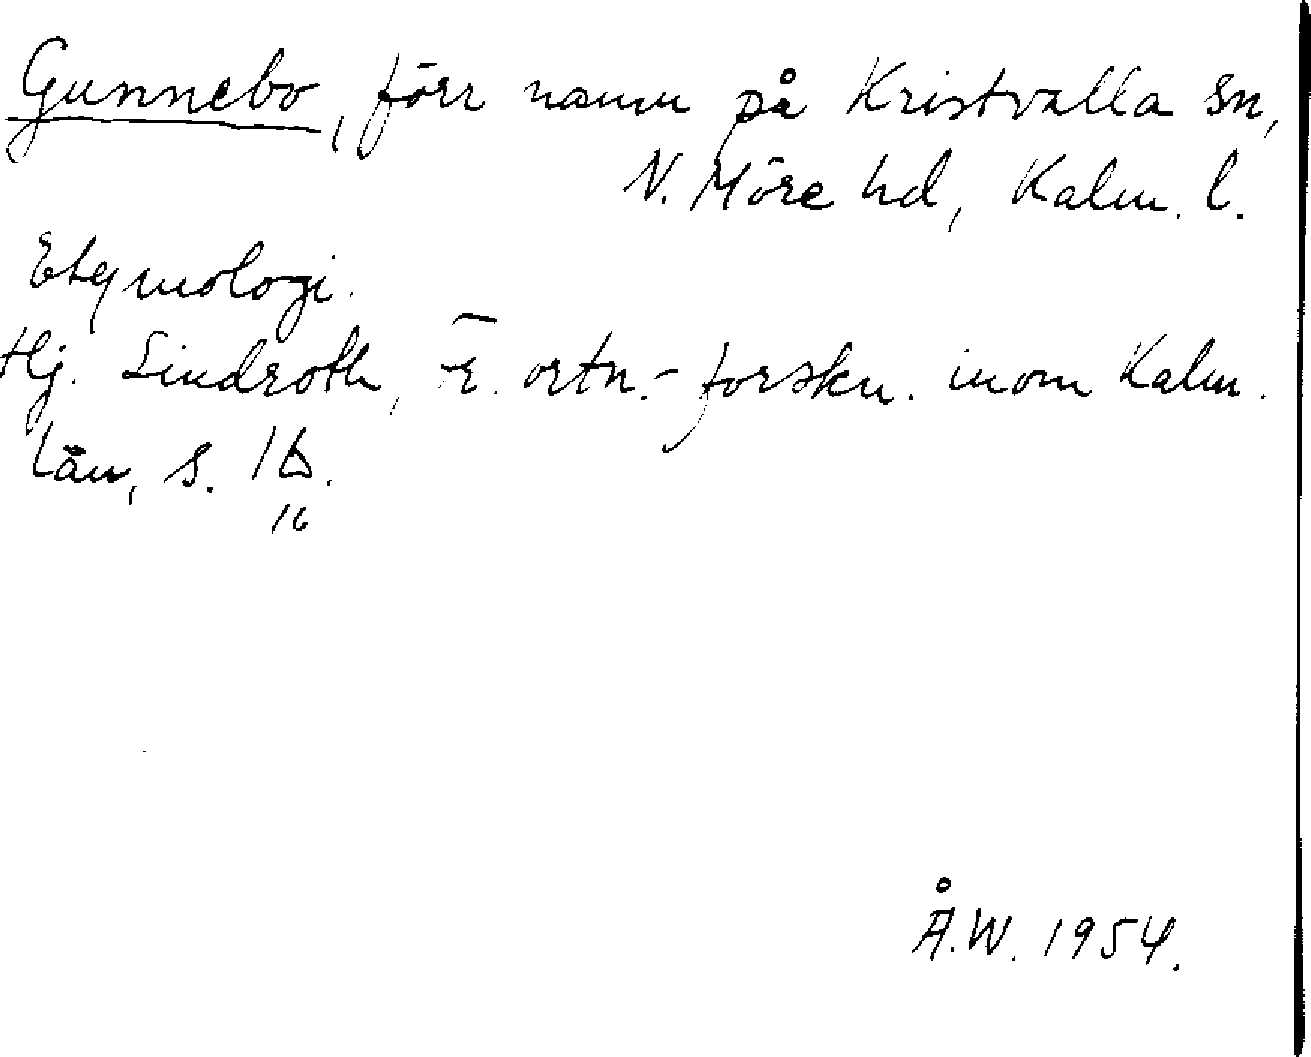 Gunnebo, förr namn på Kristvalla sn,
N. Möre hd, Kalm. l.
Etymologi.
Hj. Lindroth, Fr. ortn.-forskn. inom Kalm.
län, s. 16.
16
Å.W. 1954.